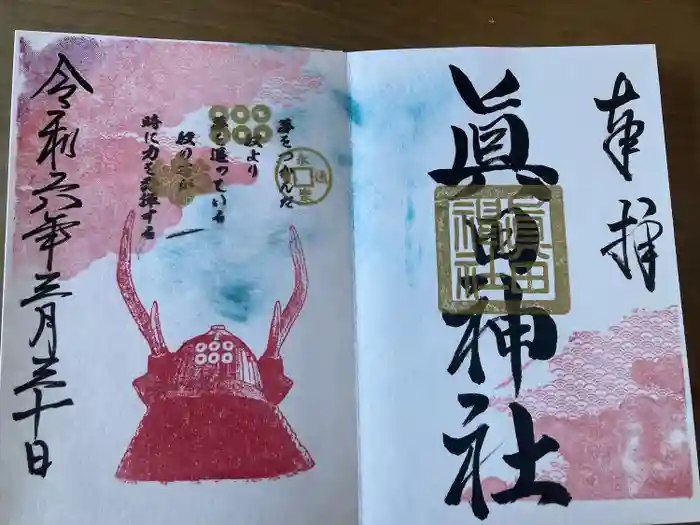 奉拝
眞田神社
眞田
神社
夢をつかんだ
奴より
夢を追っている
奴の方が
時に力を発揮する
令和六年三月三十日